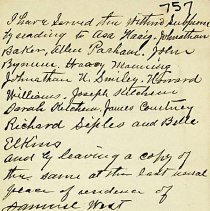 757
I have served the within subpoena
by reading to Asa Haeig, Johnathan
Baker, Ellen Parham, John
Bynum, Harvey Manning
Johnathan H. Smiley, Howard
Williams, Joseph Ketchum
Dorah Ketchum, James Courtney
Richard Siples and Belle
Elkins
and by leaving a copy of
the same at the last usual
place of residence of
Samuel West